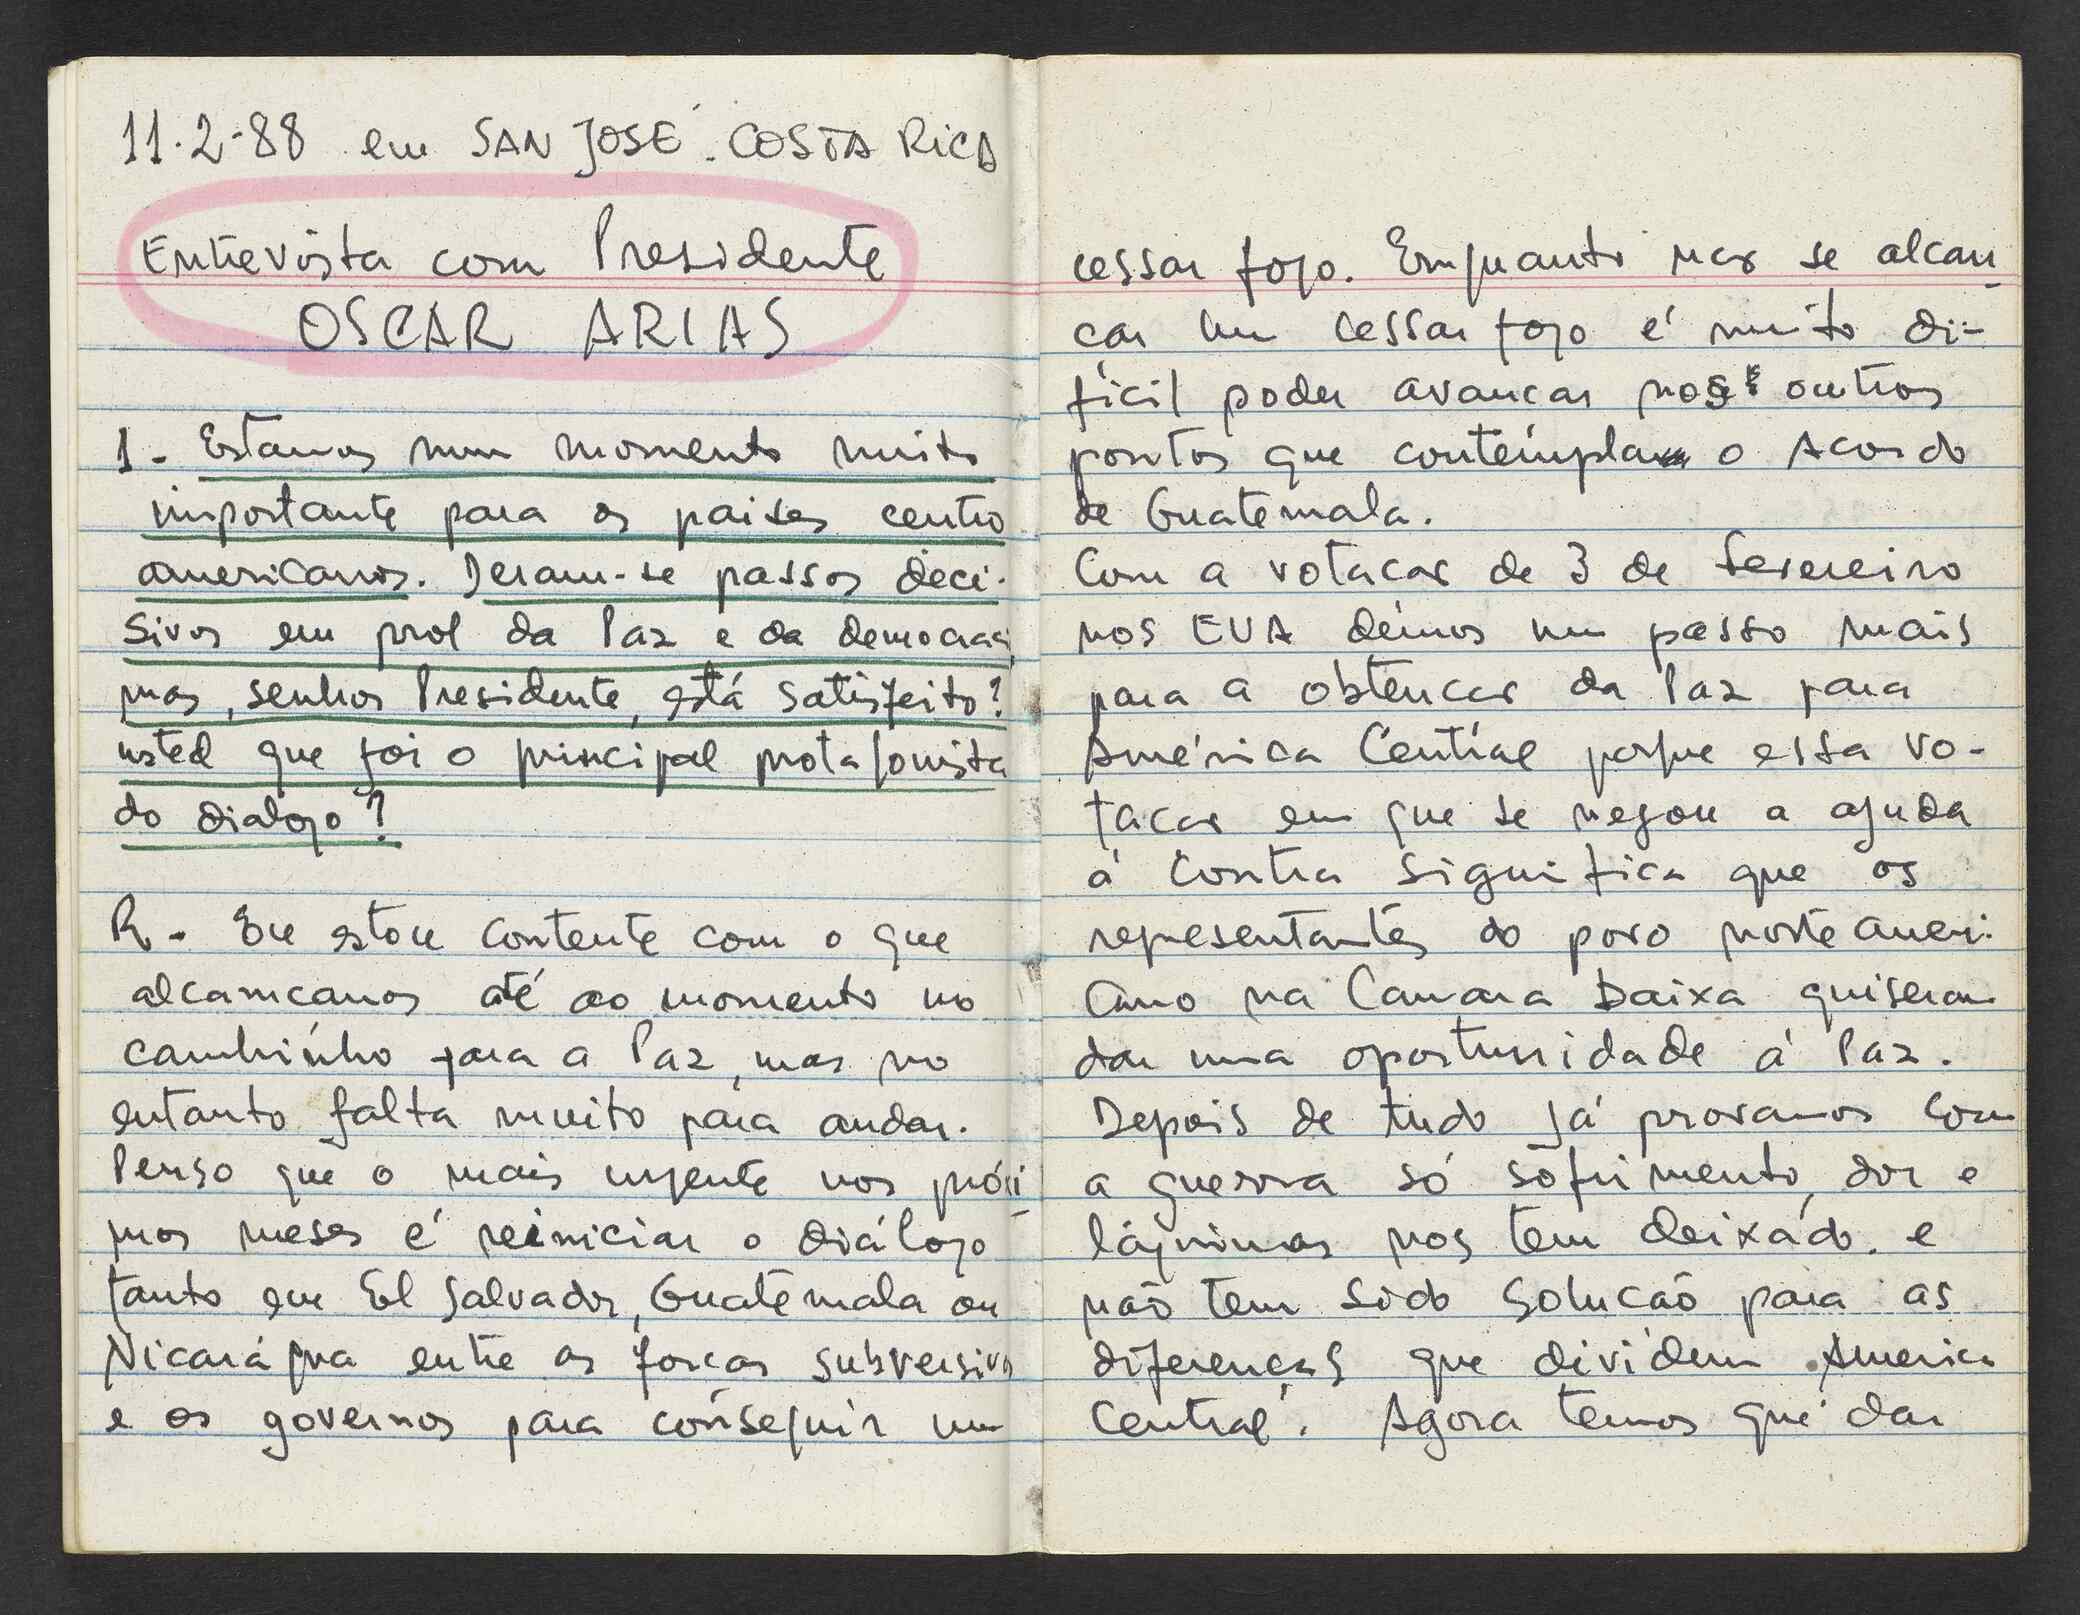 11.2-88 em SAN JOSÉ. COSTA RICA
Entrevista com Presidente
OSCAR ARIAS
1- Estamos num momento muito
importante para os paises centro
americanos. Deram-se passos deci-
sivos em prol da Paz e da democraci,
mas, senhor Presidente, está satisfeito?
usted que foi o principal protagonista
do dialogo?
R- Eu estou contente com o que
alcamcamos até ao momento no
caminho para a Paz, mas no
entanto falta muito para andar.
Penso que o mais urgente nos próxi
mos meses é reiniciar o diálogo
tanto em El Salvador, Guatemala ou
Nicarágua entre as forcas subversivas
e os governos para conseguir um
cessar fogo. Emquanto nao se alcan-
çar um cessar fogo é muito di-
ficil poder avancar nos outros
pontos que contempla o Acordo
de Guatemala.
Com a votacao de 3 de Fevereiro
nos EUA démos um passo mais
para a obtencao da Paz para
América Central porque essa vo-
tacao em que se negou a ajuda
á Contra significa que os
representantes do povo norteameri-
cano na Camara Baixa quiseram
dar uma oportunidade á Paz.
Depois de tudo já provamos com
a guerra só sofrimento, dor e
lágrimas nos tem deixado. e
não tem sido solucaõ para as
diferenças que dividem America
Central. Agora temos que dar